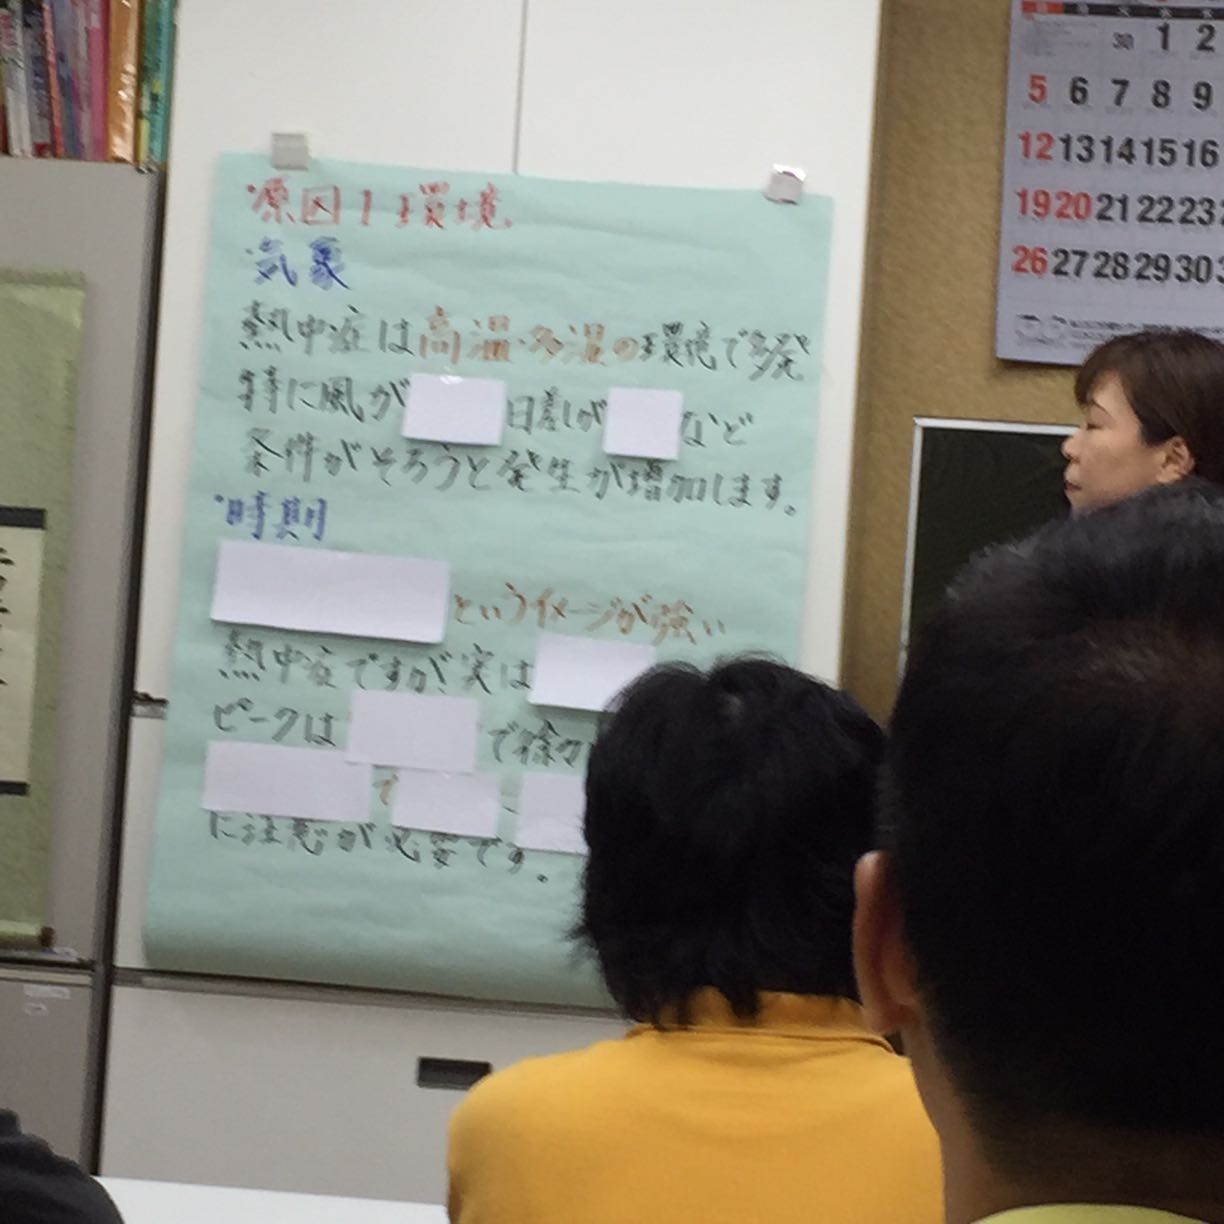 ・原因1環境
・気象
熱中症は高温・多湿の環境で多発
特に風が 日差しが など
条件がそろうと発生が増加します。
・時期
というイメージが強い
熱中症ですが、実は
ピークは で徐々
で
に注意が必要です。
30 1 2
5 6 7 8 9
12 13 14 15 16
19 20 21 22 23
26 27 28 29 30